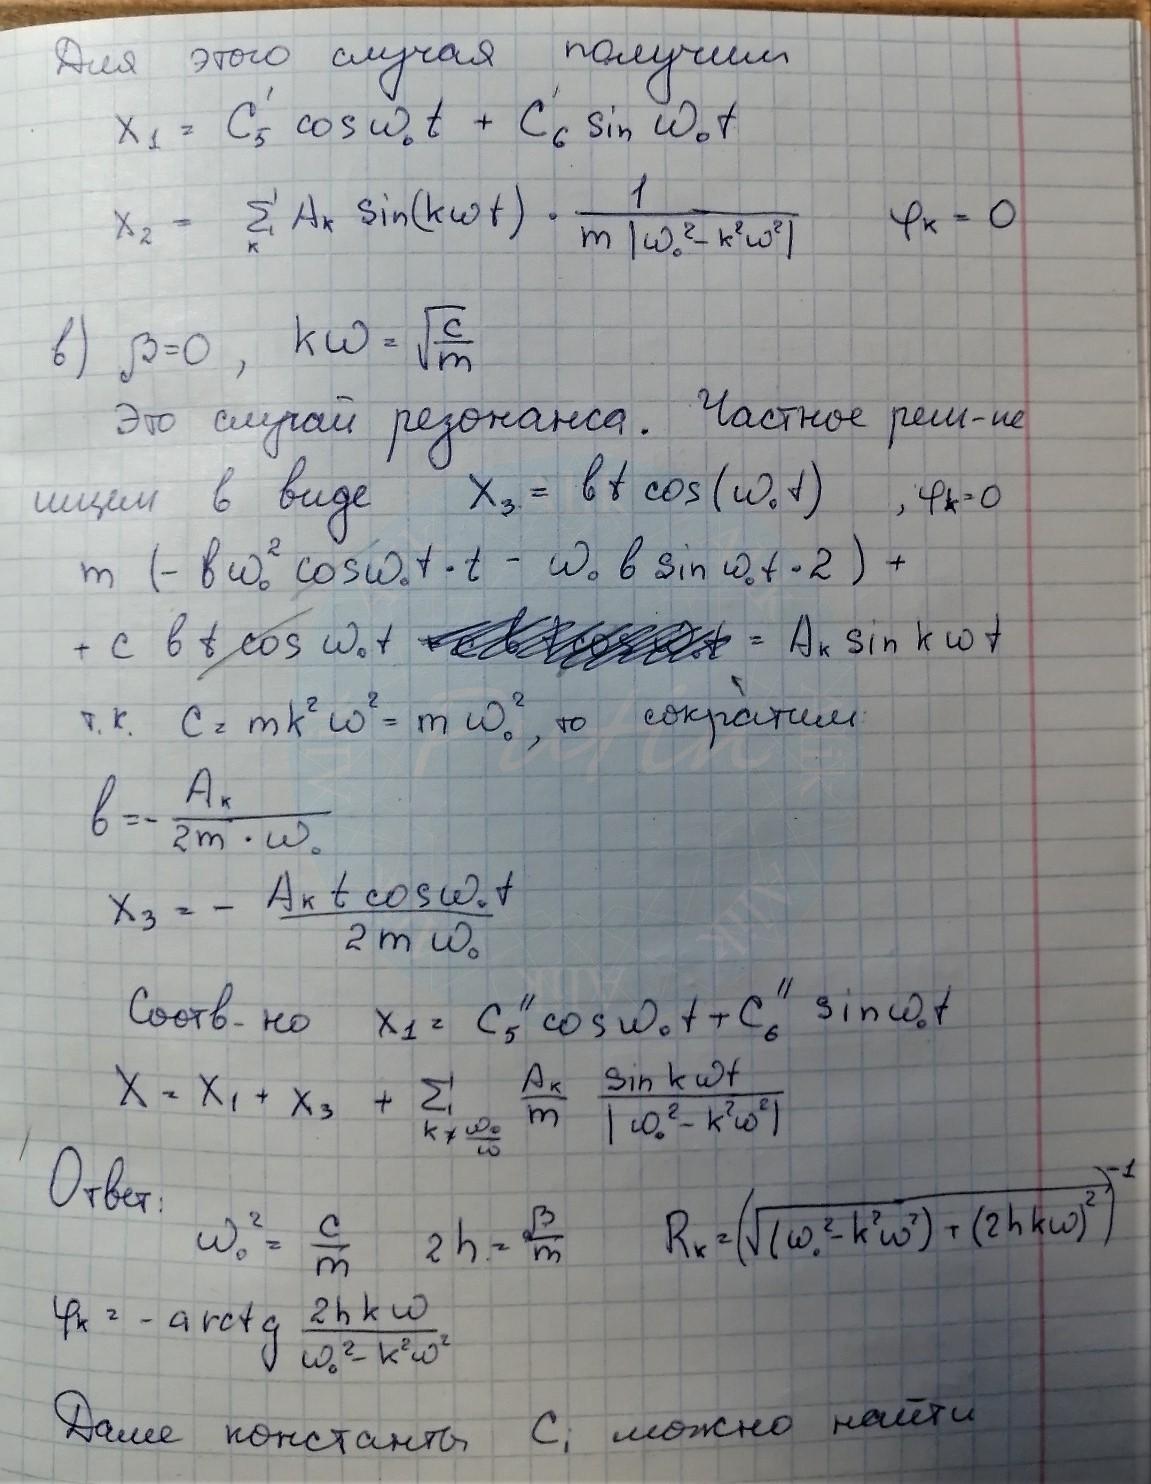 Для этого случая получим
x₁ = C₅' cos ω₀t + C₆' sin ω₀t
x₂ = Σₖ Aₖ sin(kωt) · 1 / (m |ω₀² - k²ω²|)   φₖ = 0
в) β=0, kω = √(c/m)
Это случай резонанса. Частное реш-ие
ищем в виде x₃ = вt cos(ω₀t) , φₖ=0
m (- вω₀² cosω₀t · t - ω₀ в sin ω₀t · 2) +
+ c в t cos ω₀t = Aₖ sin kωt
т.к. C = mk²ω² = mω₀², то сократим
в = - Aₖ / (2m · ω₀)
x₃ = - Aₖ t cosω₀t / (2mω₀)
Соотв-но x₁ = C₅'' cosω₀t + C₆'' sinω₀t
X = x₁ + x₃ + Σ_{k≠ω₀/ω} Aₖ/m sin kωt / |ω₀² - k²ω²|
Ответ:
ω₀² = c/m   2h = β/m   Rₖ = (√((ω₀² - k²ω²) + (2hkω)²))⁻¹
φₖ = - arctg 2hkω / (ω₀² - k²ω²)
Далее константы Cᵢ можно найти
Putin